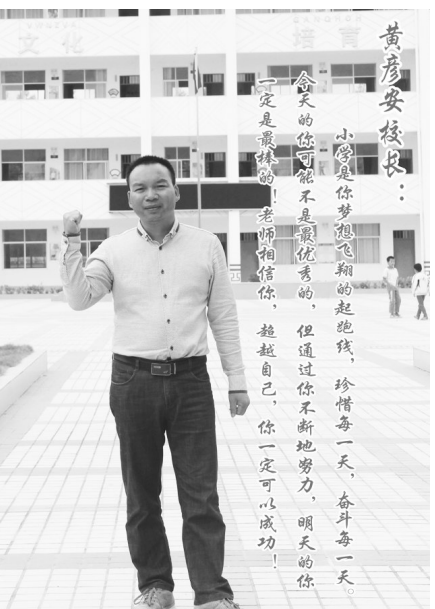 黄彦安校长：
小学是你梦想飞翔的起跑线，珍惜每一天，奋斗每一天。
今天的你可能不是最优秀的，但通过你不断地努力，明天的你
一定是最棒的！老师相信你，超越自己，你一定可以成功！
文化
培育